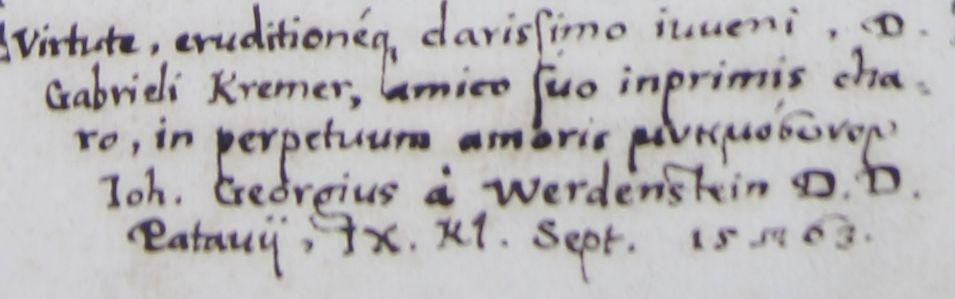 Virtute, eruditioneq, clarissimo iuueni, D.
Gabrieli Kremer, amico suo inprimis cha-
ro, in perpetuum amoris μνημόσυνον
Joh. Georgius à Werdenstein D. D.
Patauij, IX. Kl. Sept. 1563.